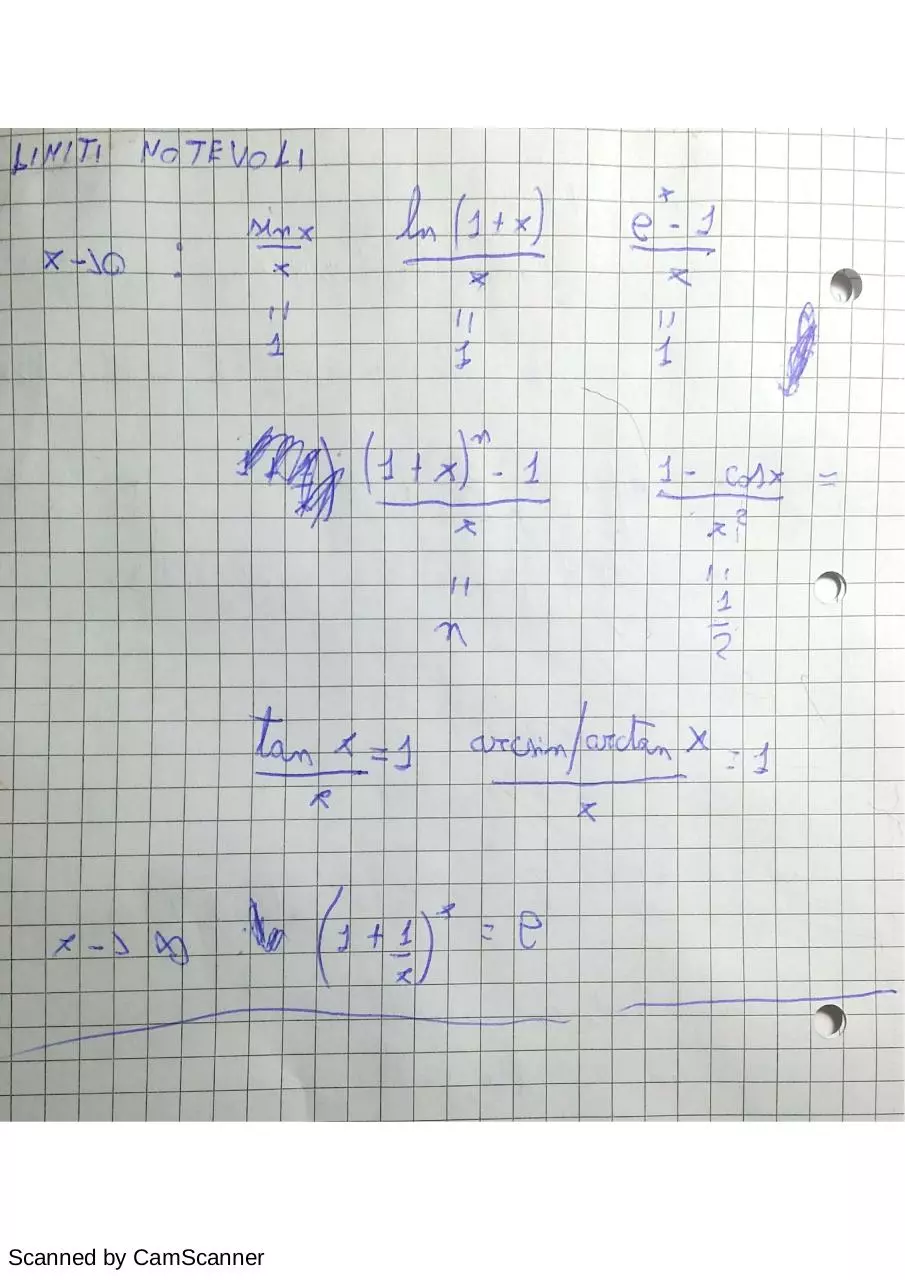 LIMITI NOTEVOLI
x → 0 : sin x / x = 1    ln (1 + x) / x = 1    e^x - 1 / x = 1
(1 + x)^n - 1 / x = n    1 - cos x / x² = 1/2 =
tan x / x = 1    arcsin/arctan x / x = 1
x → ∞    (1 + 1/x)^x = e
Scanned by CamScanner